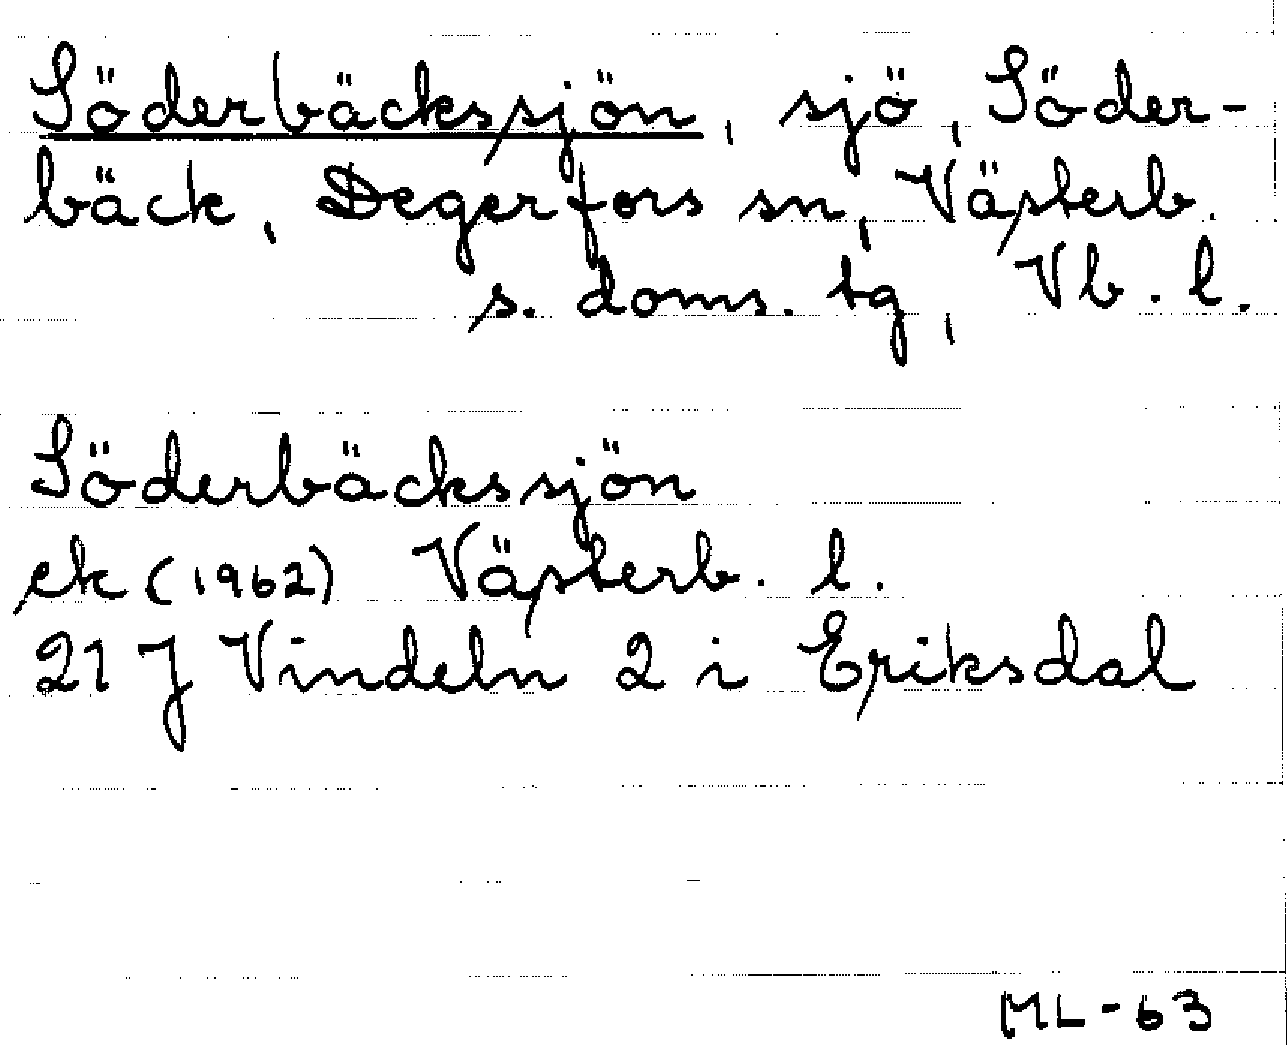 Söderbäckssjön, sjö, Söder-
bäck, Degerfors sn, Västerb.
s. doms. tg, Vb. l.
Söderbäckssjön
ek (1962) Västerb. l.
21 J Vindeln 2 i Eriksdal
ML-63